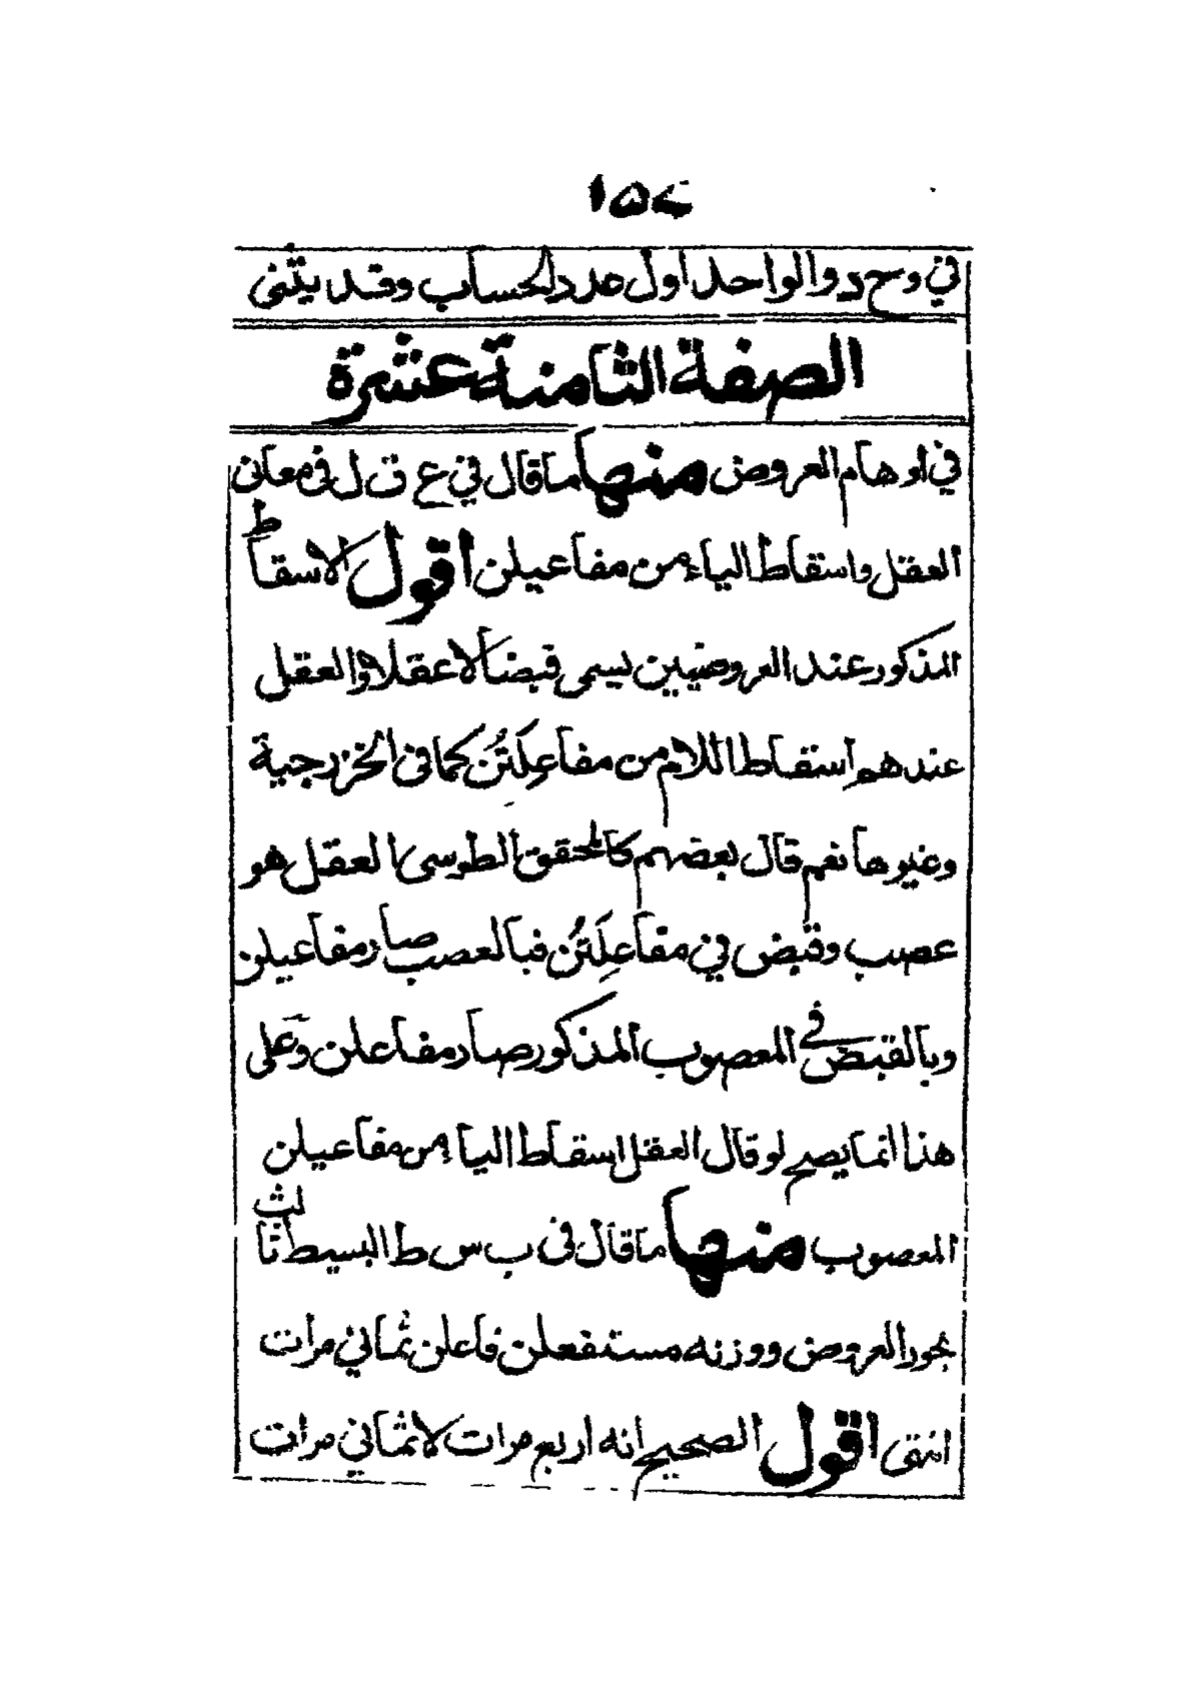 ١٥٤
في وح د والواحد اول عدد الحساب وقد يثنى
الصفة الثامنة عشرة
في اوهام العروض منها ما قال في ع ق ل في معاني
العقل واسقاط الياء من مفاعيلن اقول الاسقاط
المذكور عند العروضيين يسمى قبضا لا عقلا والعقل
عندهم اسقاط اللام من مفاعِلَتُن كما في الخزرجية
وغيرها نعم قال بعضهم كالمحقق الطوسي العقل هو
عصب وقبض في مفاعِلَتُن فبالعصب صار مفاعيلن
وبالقبض في المعصوب المذكور صار مفاعلن وعلى
هذا انما يصح لو قال العقل اسقاط الياء من مفاعيلن
المعصوب منها ما قال في ب س ط البسيط ثالث
بحور العروض ووزنه مستفعلن فاعلن ثماني مرات
انتهى اقول الصحيح انه اربع مرات لا ثماني مرات